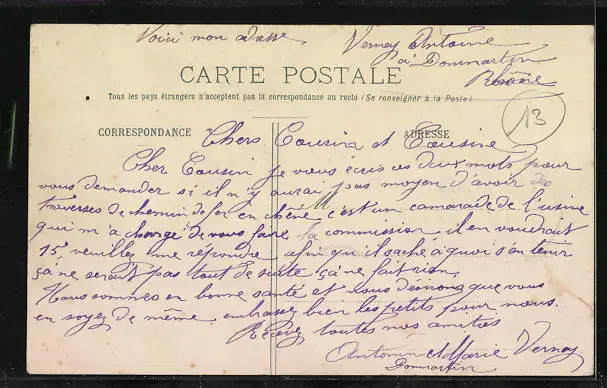 Voici mon adresse Vernay Antoine
à Dommartin
Rhône
CARTE POSTALE
Tous les pays étrangers n'acceptent pas la correspondance au recto (Se renseigner à la Poste)
13
CORRESPONDANCE
ADRESSE
Chers Cousins et Cousine
Cher Cousin je vous écris ces deux mots pour
vous demander si il n'y aurai pas moyen d'avoir des
traverses de chemin de fer en chêne c'est un camarade de l'usine
qui m'a chargé de vous faire la commission il en voudrait
15, veuillez me répondre afin qu'il sache à quoi s'en tenir
ça ne serait pas tout de suite ça ne fait rien.
Nous sommes en bonne santé et nous désirons que vous
en soyez de même, embrassez bien les petits pour nous.
Recevez toutes nos amitiés
Antonin et Marie Vernay
Dommartin